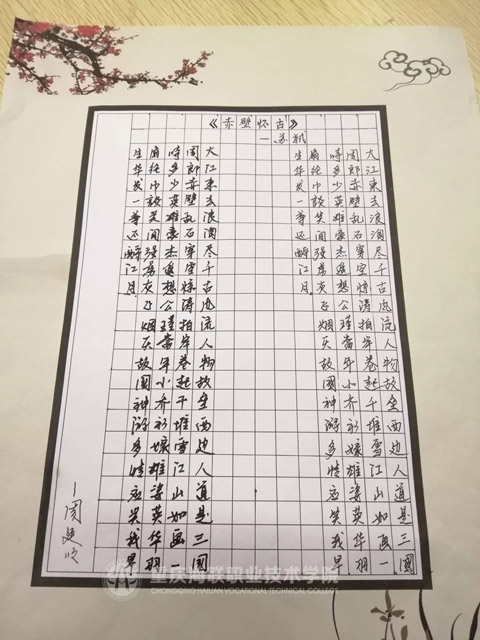 《赤壁怀古》
—苏轼
大江東去浪淘尽千古风流人物故垒西边人道是三國
周郎赤壁乱石穿空惊涛拍岸卷起千堆雪江山如画一
時多少英雄豪杰遥想公瑾当年小乔初嫁雄姿英华羽
扇纶巾談笑间强虏灰飞烟灭故國神游多情应笑我早
生华发一尊还酹江月
大江東去浪淘尽千古风流人物故垒西边人道是三國
周郎赤壁乱石穿空惊涛拍岸卷起千堆雪江山如画一
時多少英雄豪杰遥想公瑾当年小乔初嫁雄姿英华羽
扇纶巾談笑间强虏灰飞烟灭故國神游多情应笑我早
生华发一尊还酹江月
重庆海联职业技术学院
CHONGQING HAILIAN VOCATIONAL TECHNICAL COLLEGE